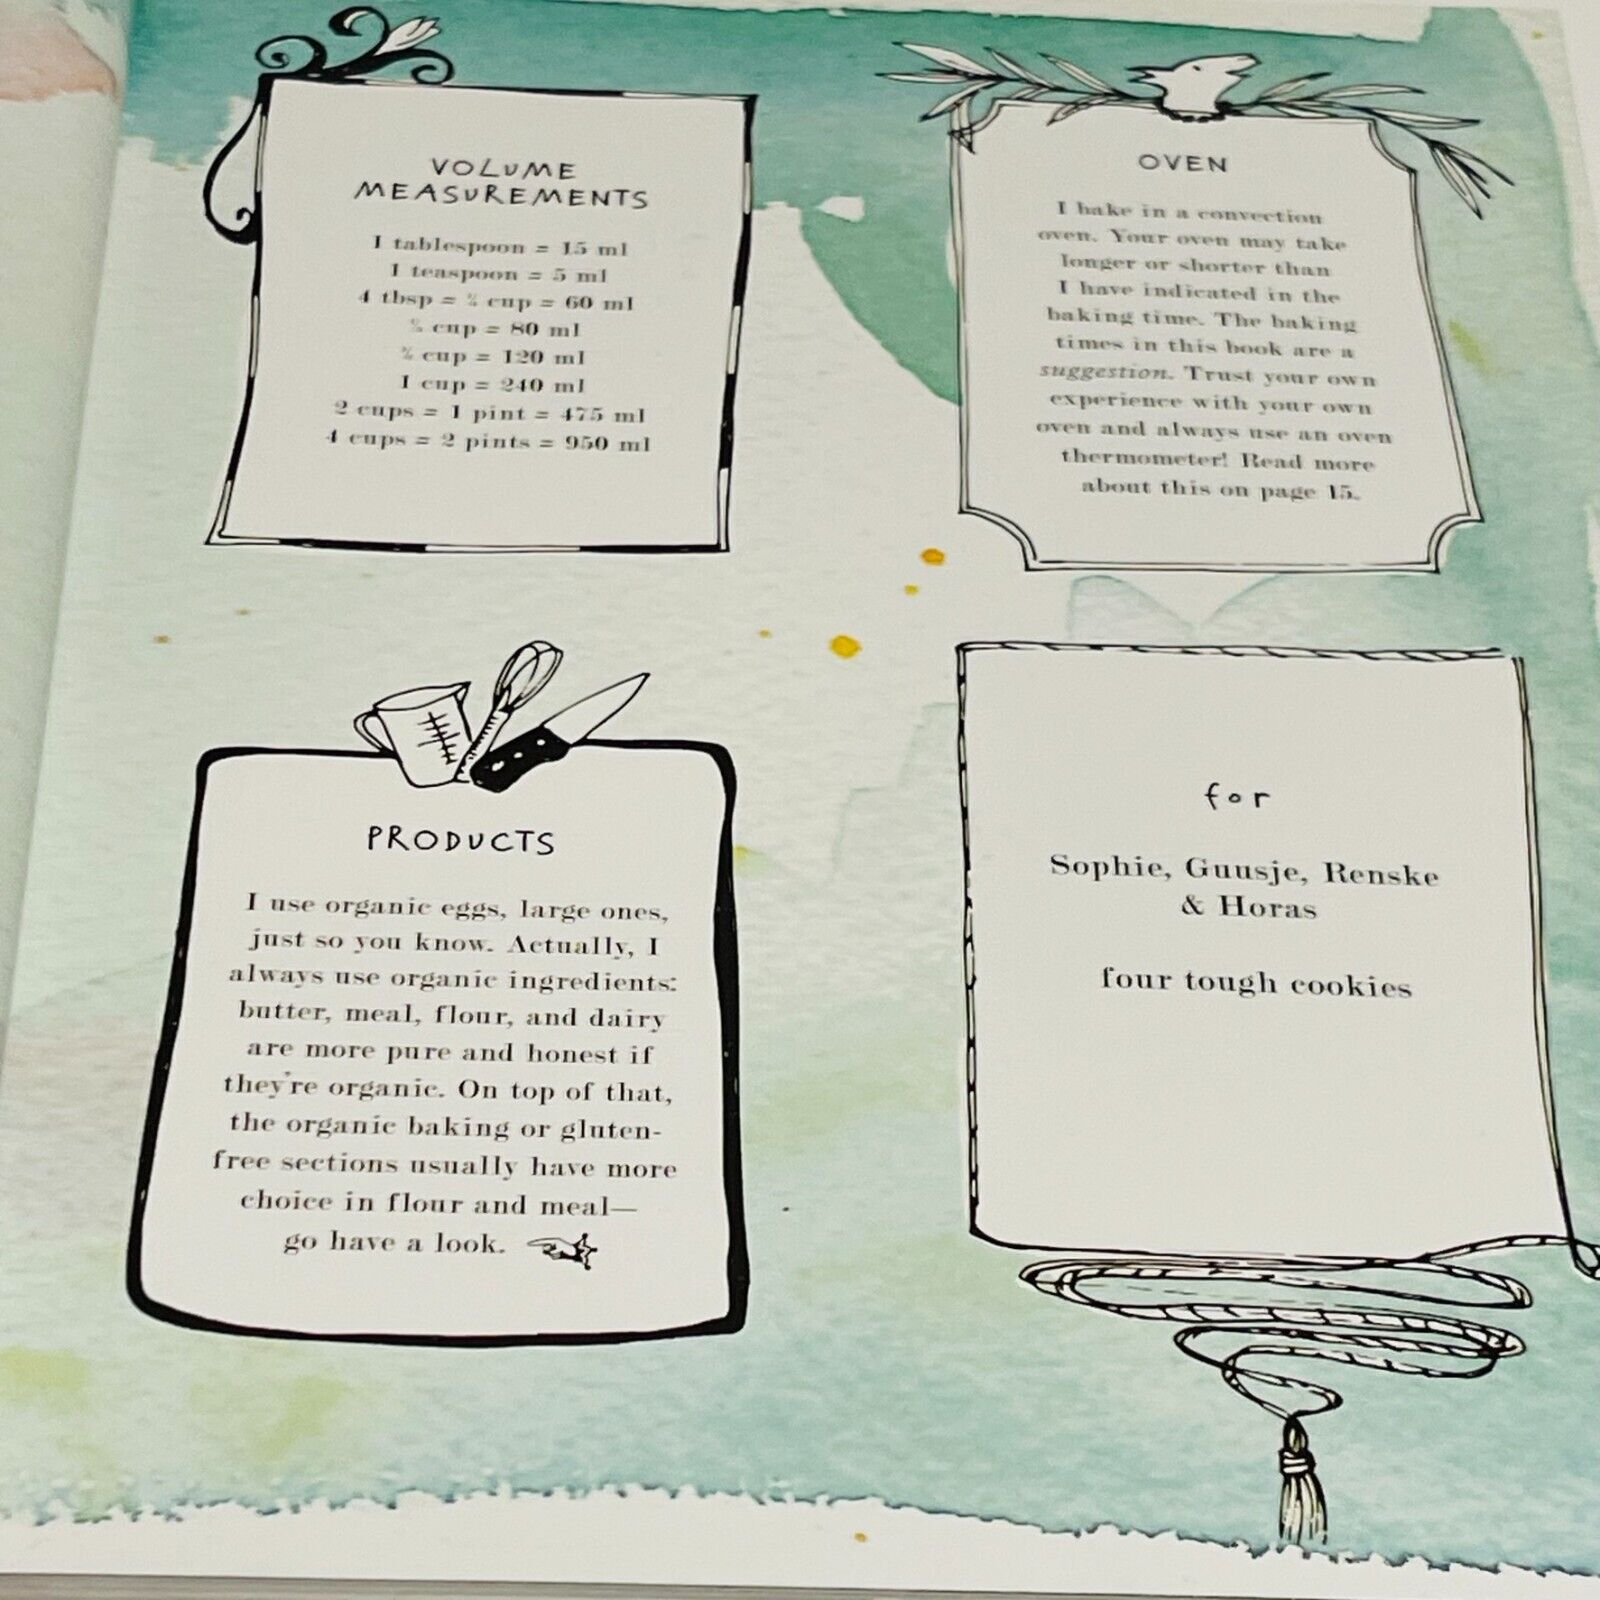 VOLUME
MEASUREMENTS
1 tablespoon = 15 ml
1 teaspoon = 5 ml
4 tbsp = ¼ cup = 60 ml
cup = 80 ml
cup = 120 ml
1 cup = 240 ml
2 cups = 1 pint = 475 ml
4 cups = 2 pints = 950 ml
OVEN
I bake in a convection
oven. Your oven may take
longer or shorter than
I have indicated in the
baking time. The baking
times in this book are a
suggestion. Trust your own
experience with your own
oven and always use an oven
thermometer! Read more
about this on page 15.
PRODUCTS
I use organic eggs, large ones,
just so you know. Actually, I
always use organic ingredients:
butter, meal, flour, and dairy
are more pure and honest if
they're organic. On top of that,
the organic baking or gluten-
free sections usually have more
choice in flour and meal—
go have a look.
for
Sophie, Guusje, Renske
& Horas
four tough cookies